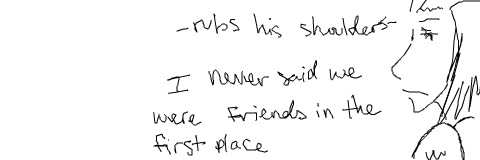 -rubs his shoulders-
I never said we
were friends in the
first place